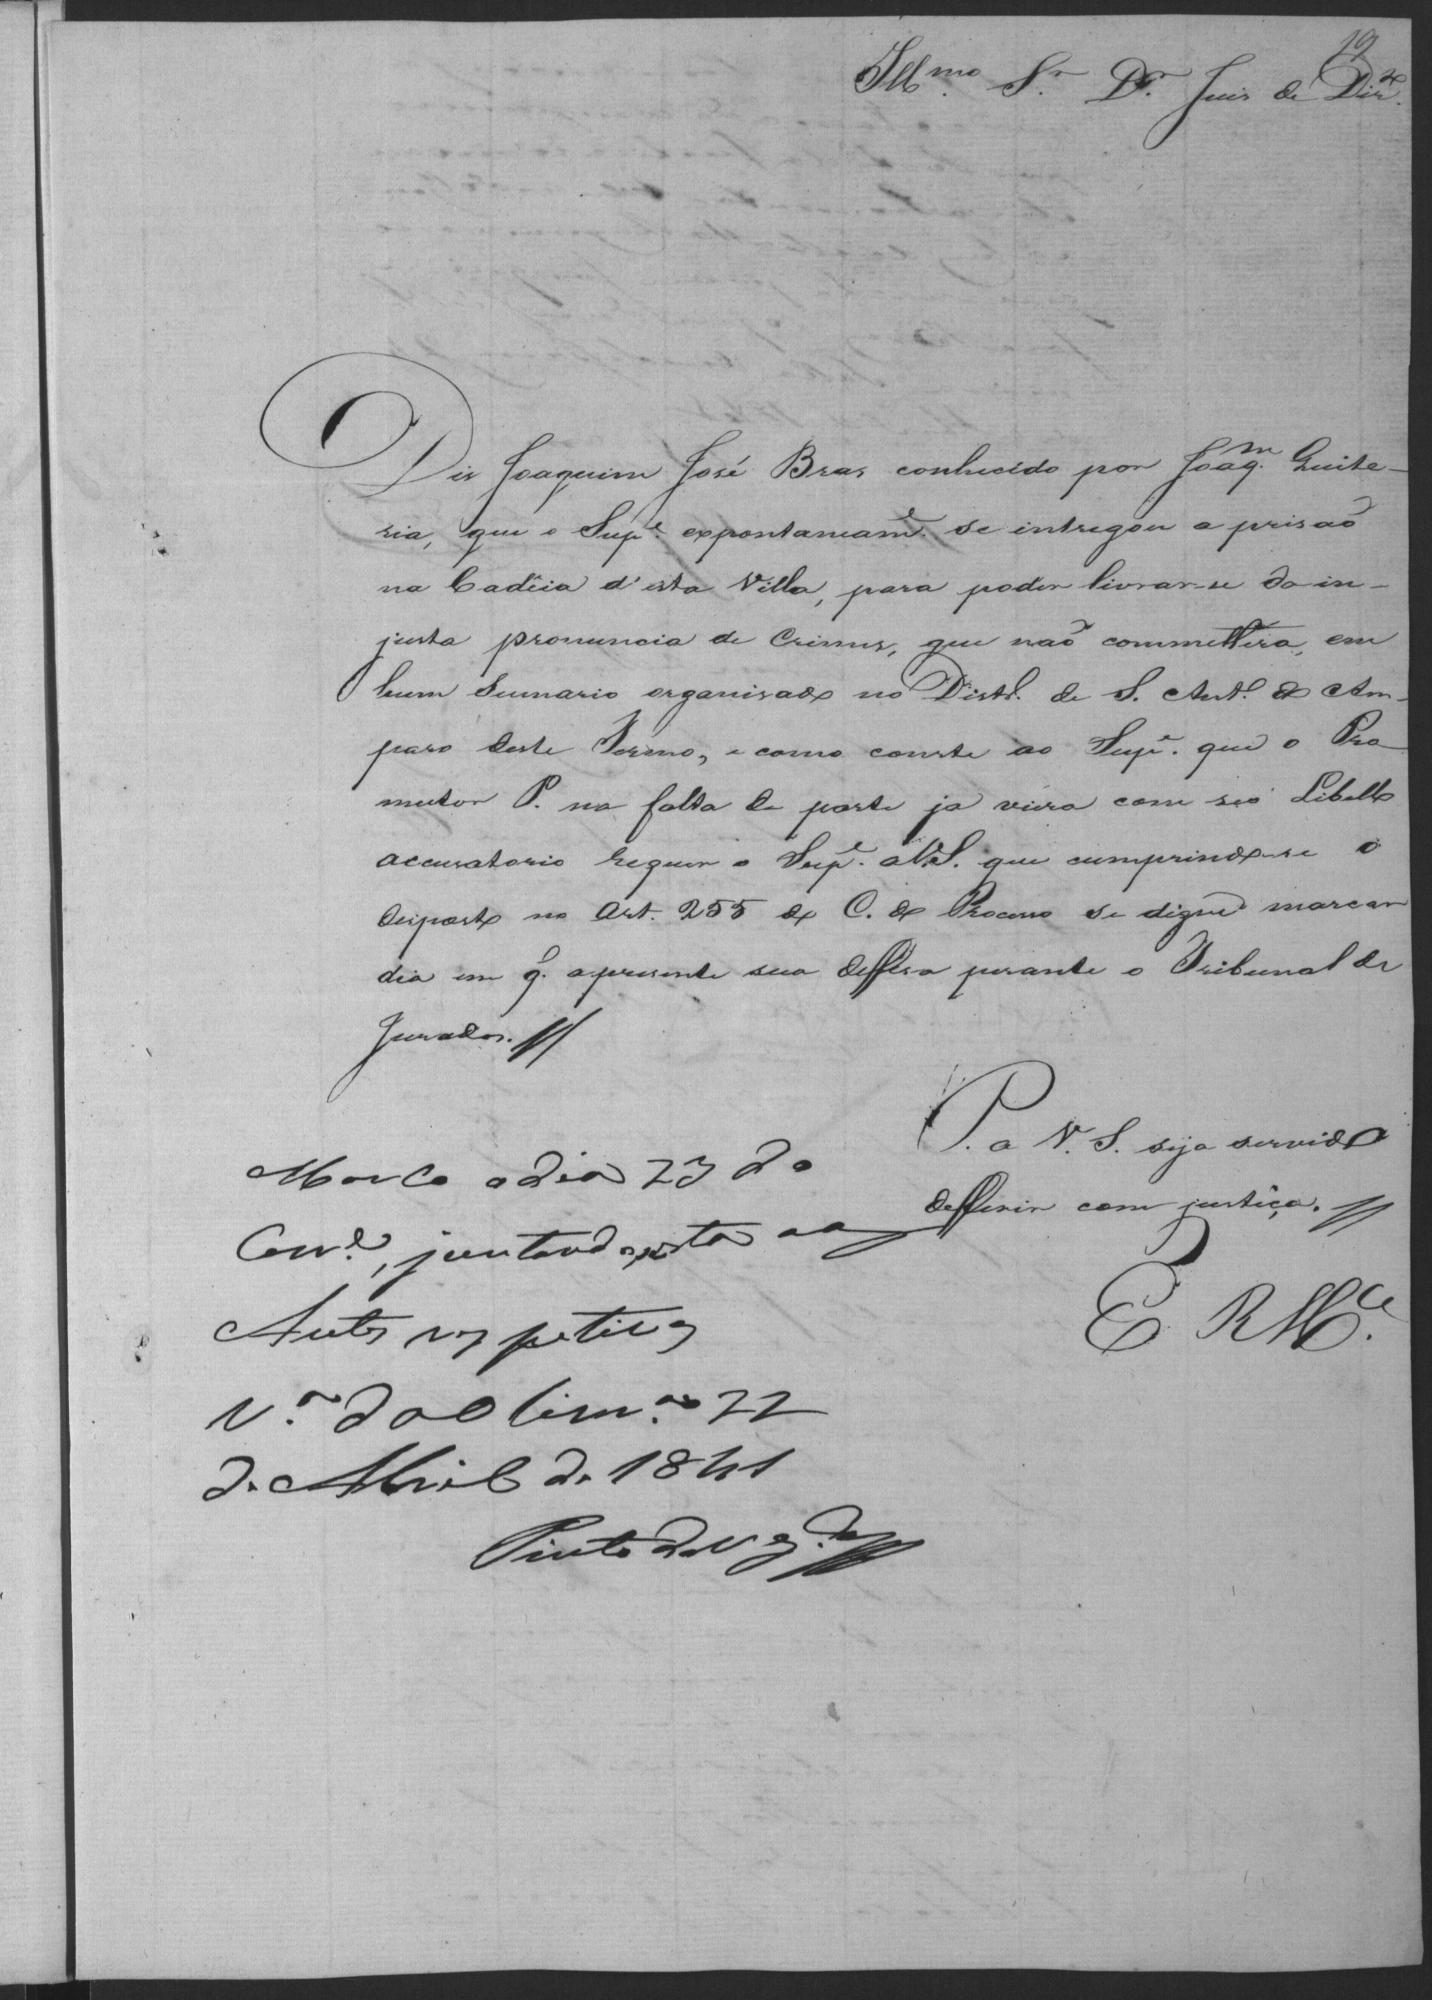 19
Ill.mo S.r D.r Juis de Dir.to
Dis Joaquim José Bras conhecido por Joaq.m Quite-
ria, que o Sup.e expontaneam.e se intregou a prisaõ
na Cadêia d'esta Villa, para poder livrar-se da in-
justa pronuncia de Crimes, que naõ commettera, em
hum Sumario organisado no Distr.o de S. Ant.o do Am-
paro deste Termo, e como conste ao Sup.e que o Pro
mutor P. na falta de parte ja viera com seo Libello
accusatorio requer o Sup.e a V.S. que cumprindo-se o
disposto no Art. 255 do C. do Processo se digne marcar
dia em q. apresente sua deffesa perante o Tribunal de
Jurados.
P. a V. S. seja servido
defferir com justiça.
E R M.ce
Marco o dia 23 do
Corr.e, juntando esta aos
Autos respetivos
V.a da Oliv.ra 22
de Abril de 1841
Pinto de